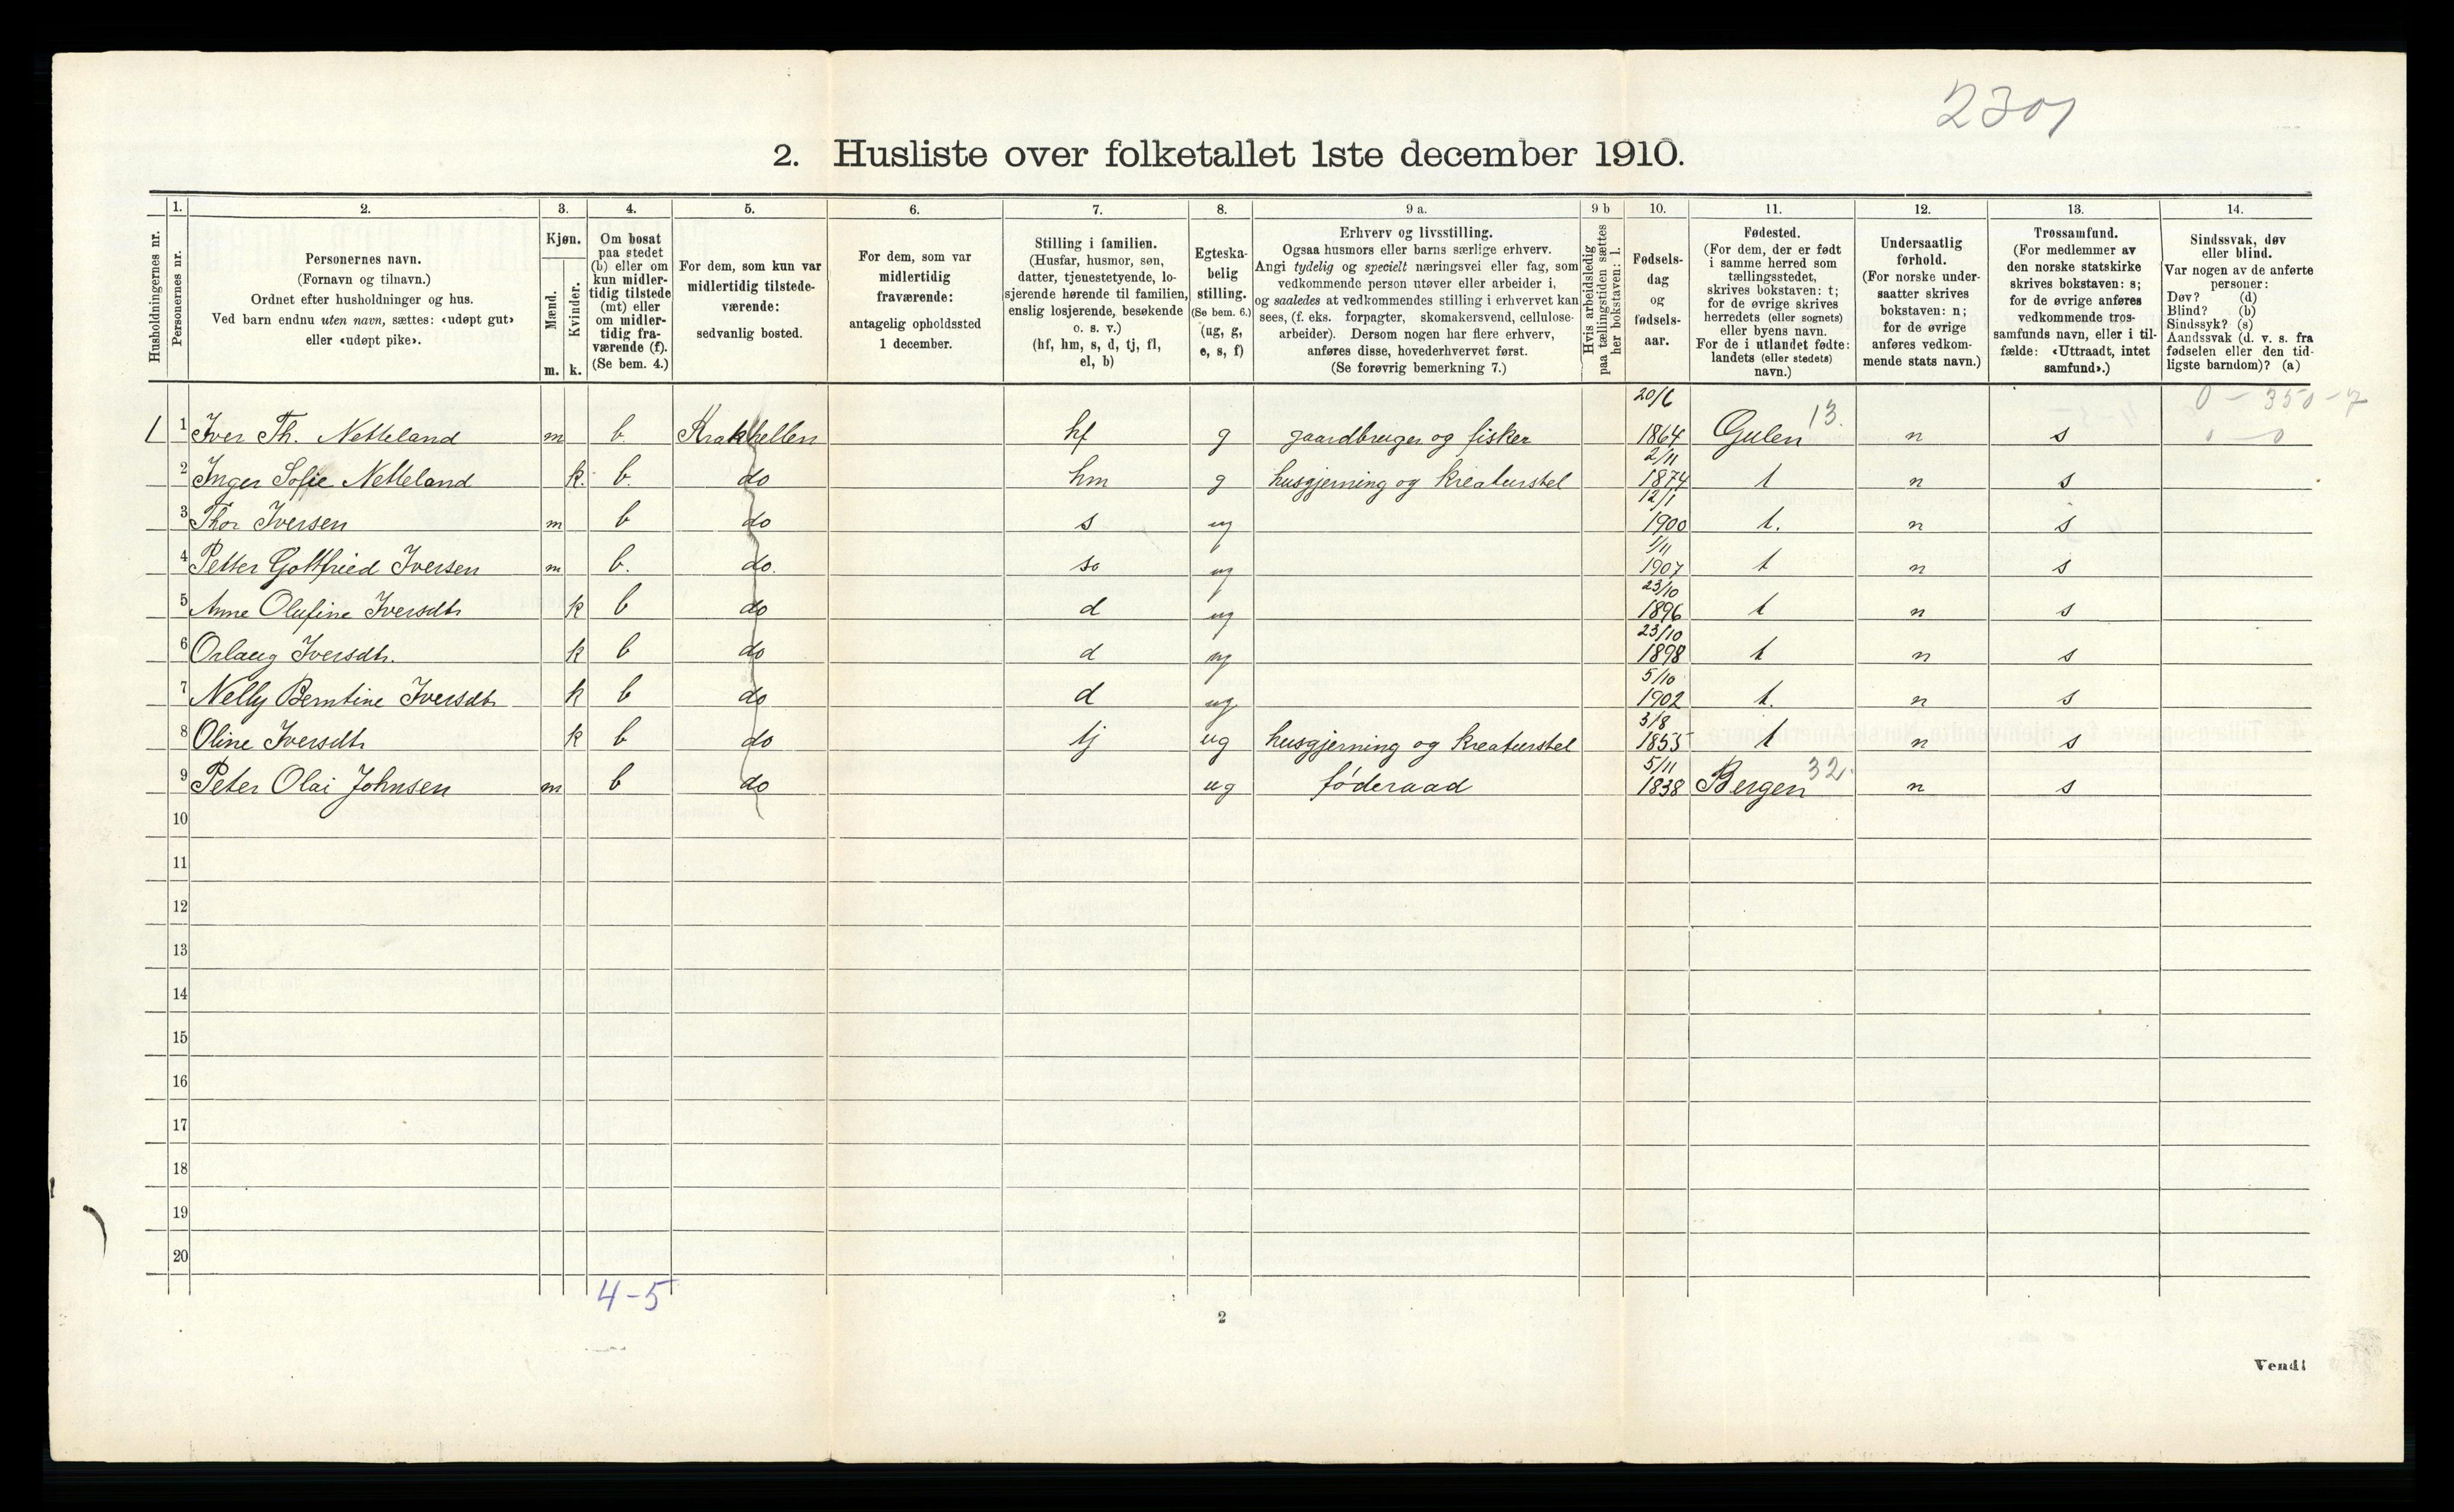 2301
2. Husliste over folketallet 1ste december 1910.
Husholdningernes nr.
1. Personernes nr.
2. Personernes navn. (Fornavn og tilnavn.) Ordnet efter husholdninger og hus. Ved barn endnu uten navn, sættes: «udøpt gut» eller «udøpt pike».
3. Kjøn. Mænd. m. Kvinder. k.
4. Om bosat paa stedet (b) eller om kun midlertidig tilstede (mt) eller om midlertidig fraværende (f). (Se bem. 4.)
5. For dem, som kun var midlertidig tilstedeværende: sedvanlig bosted.
6. For dem, som var midlertidig fraværende: antagelig opholdssted 1 december.
7. Stilling i familien. (Husfar, husmor, søn, datter, tjenestetyende, losjerende hørende til familien, enslig losjerende, besøkende o. s. v.) (hf, hm, s, d, tj, fl, el, b)
8. Egteskabelig stilling. (Se bem. 6.) (ug, g, e, s, f)
9 a. Erhverv og livsstilling. Ogsaa husmors eller barns særlige erhverv. Angi tydelig og specielt næringsvei eller fag, som vedkommende person utøver eller arbeider i, og saaledes at vedkommendes stilling i erhvervet kan sees, (f. eks. forpagter, skomakersvend, cellulosearbeider). Dersom nogen har flere erhverv, anføres disse, hovederhvervet først. (Se forøvrig bemerkning 7.)
9 b Hvis arbeidsledig paa tællingstiden sættes her bokstaven: l.
10. Fødselsdag og fødselsaar.
11. Fødested. (For dem, der er født i samme herred som tællingsstedet, skrives bokstaven: t; for de øvrige skrives herredets (eller sognets) eller byens navn. For de i utlandet fødte: landets (eller stedets) navn.)
12. Undersaatlig forhold. (For norske undersaatter skrives bokstaven: n; for de øvrige anføres vedkommende stats navn.)
13. Trossamfund. (For medlemmer av den norske statskirke skrives bokstaven: s; for de øvrige anføres vedkommende trossamfunds navn, eller i tilfælde: «Uttraadt, intet samfund».)
14. Sindssvak, døv eller blind. Var nogen av de anførte personer: Døv? (d) Blind? (b) Sindssyk? (s) Aandssvak (d. v. s. fra fødselen eller den tidligste barndom)? (a)
0 - 350 - 7
0 - 0
1 1 Iver Th. Netteland m b. Krakhellen hf g gaardbruger og fisker 20/6 1864 Gulen 13. n s
2 Inger Sofie Netteland k. b. do hm g husgjerning og kreaturstel 2/11 1874 t n s
3 Thor Iversen m b do s ug 12/1 1900 t. n s
4 Petter Gottfried Iversen m b. do. so ug 1/11 1907 t n s
5 Anne Olufine Iversdtr k b do d ug 23/10 1896 t n s
6 Orlaug Iversdtr. k b do d ug 23/10 1898 t n s
7 Nelly Berntine Iversdtr k b do d ug 5/10 1902 t. n s
8 Oline Iversdtr k b do tj ug husgjerning og kreaturstel 3/8 1855 t n s
9 Peter Olai Johnsen m b do ug føderaad 5/11 1838 Bergen 32. n s
10
11
12
13
14
15
16
17
18
19
20
4-5
2
Vend!